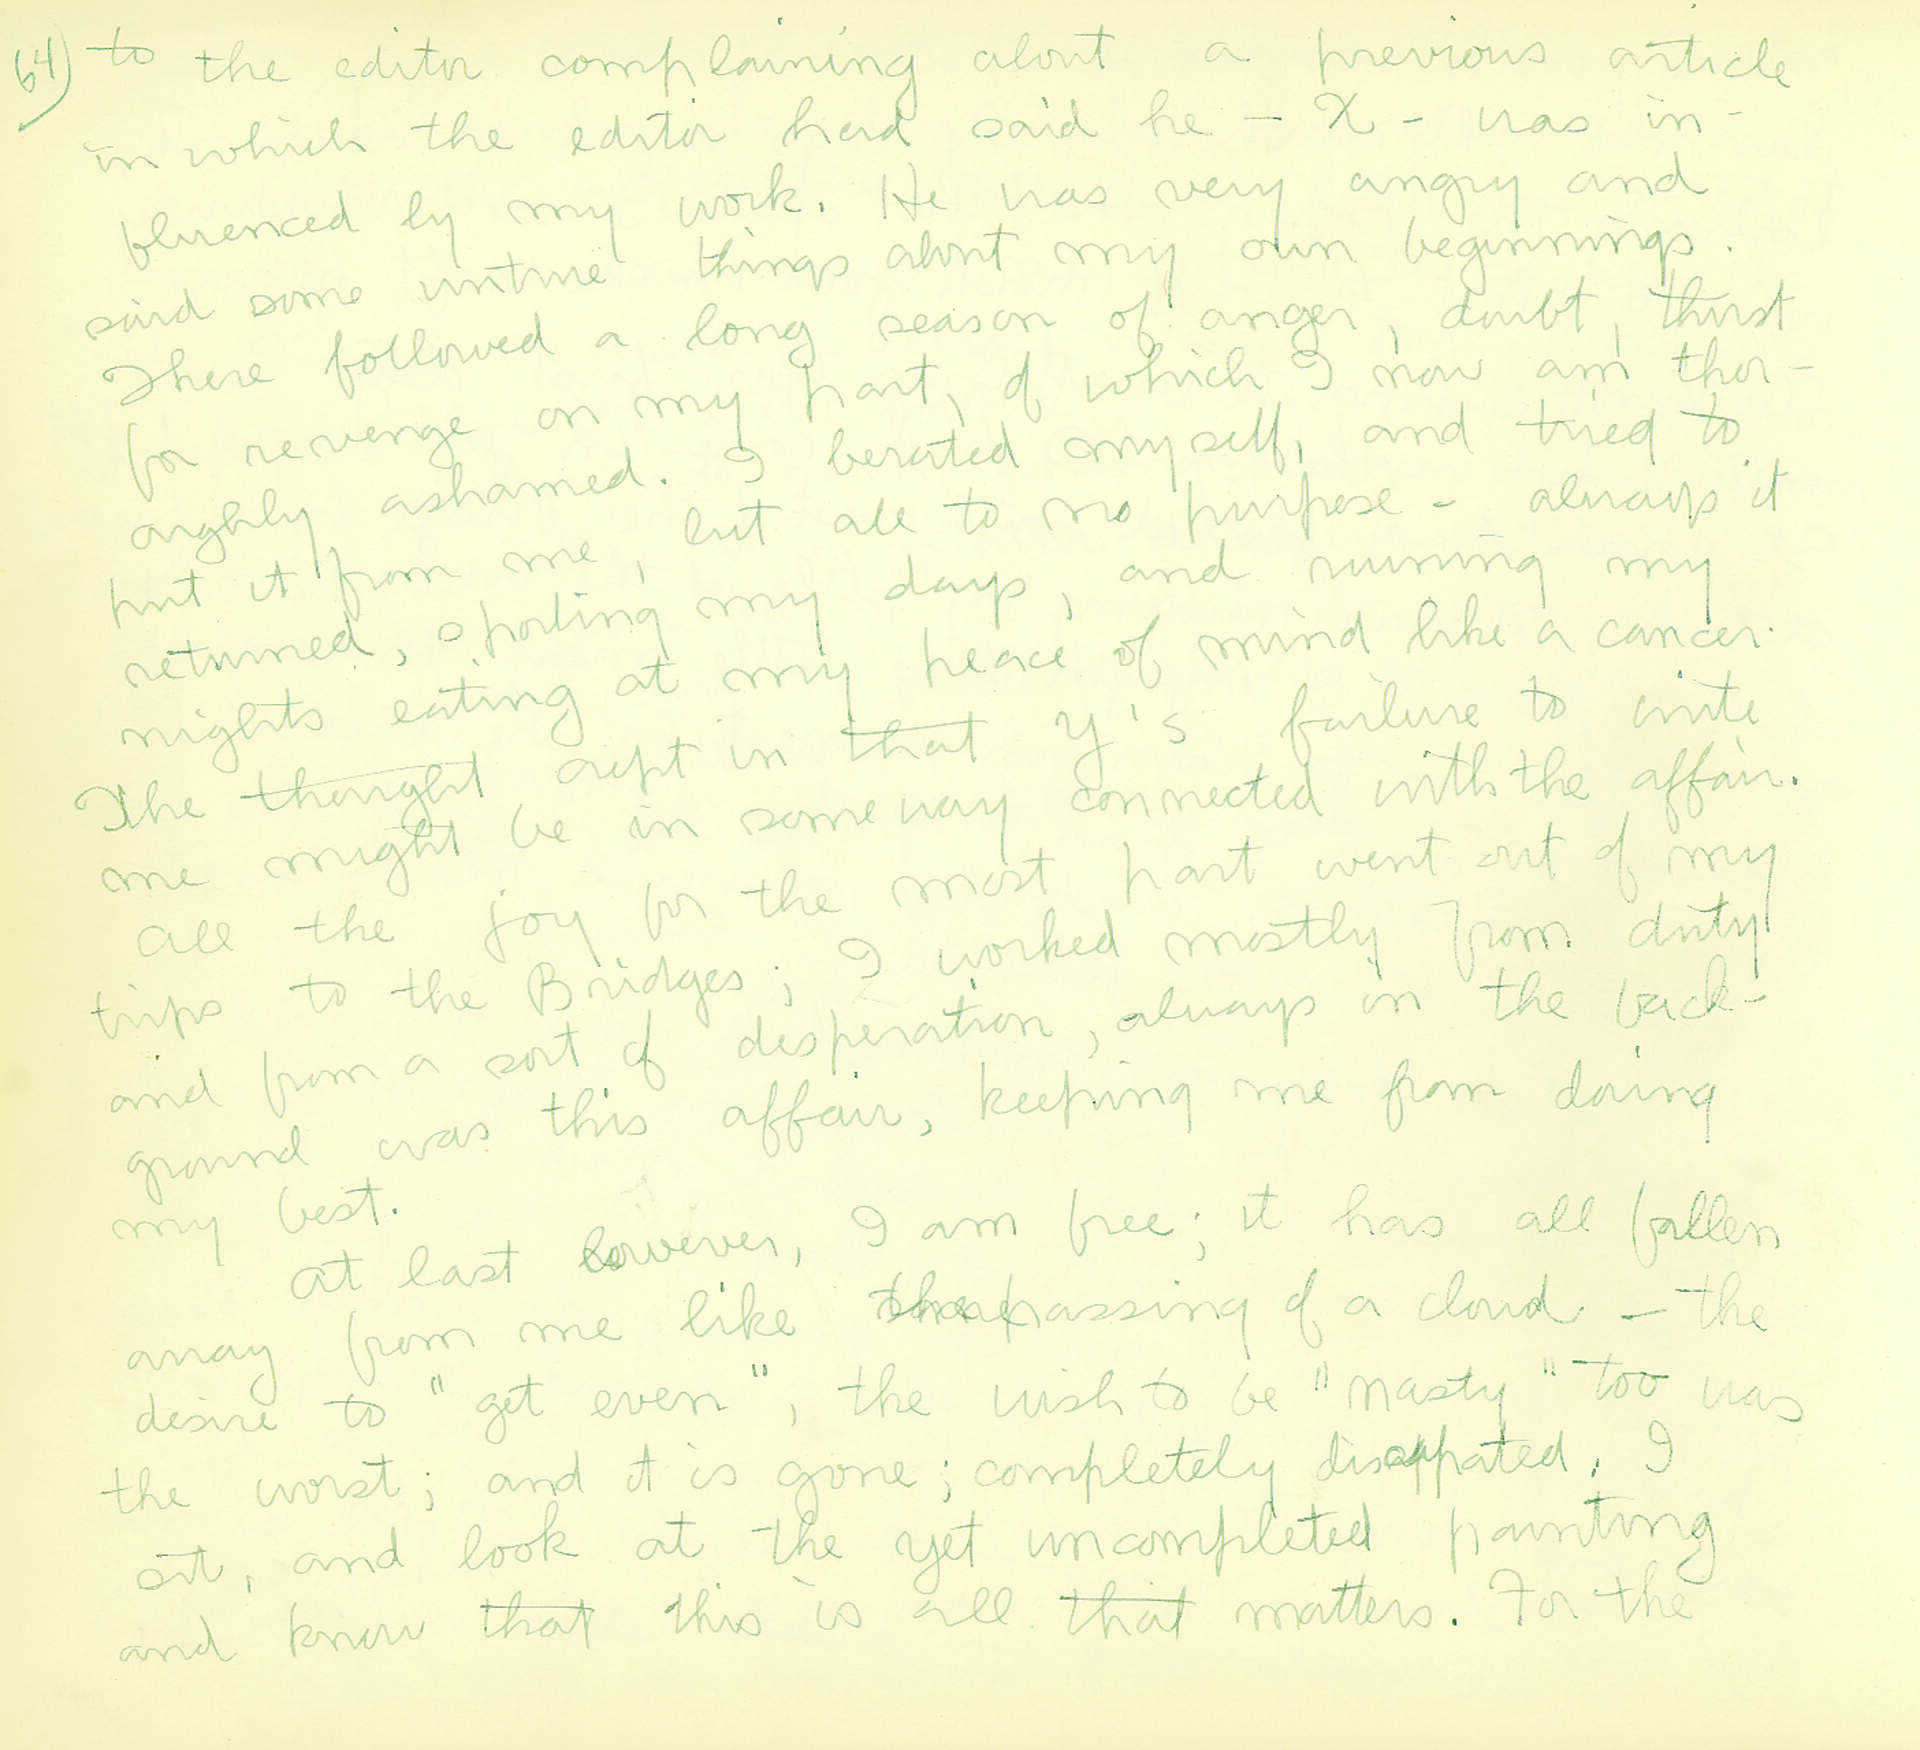 64) to the editor complaining about a previous article
in which the editor had said he – X – was in-
fluenced by my work. He was very angry and
said some untrue things about my own beginnings.
There followed a long season of anger, doubt, thirst
for revenge on my part, of which I now am thor-
oughly ashamed. I berated myself, and tried to
put it from me, but all to no purpose – always it
returned, spoiling my days, and ruining my
nights eating at my peace of mind like a cancer.
The thought crept in that Y's failure to write
me might be in some way connected with the affair.
All the joy for the most part went out of my
trips to the Bridges; I worked mostly from duty
and from a sort of desperation, always in the back-
ground was this affair, keeping me from doing
my best.
At last however, I am free; it has all fallen
away from me like the passing of a cloud – the
desire to "get even", the wish to be "nasty" too was
the worst; and it is gone; completely dissipated. I
sit, and look at the yet uncompleted painting
and know that this is all that matters. For the